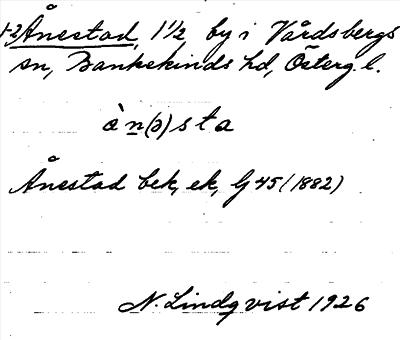 1-2 Ånestad, 1 1/2, by i Vårdsbergs
sn, Bankekinds hd, Österg. l.
àn(ə)sta
Ånestad bek, ek, G 45 (1882)
N. Lindqvist 1926